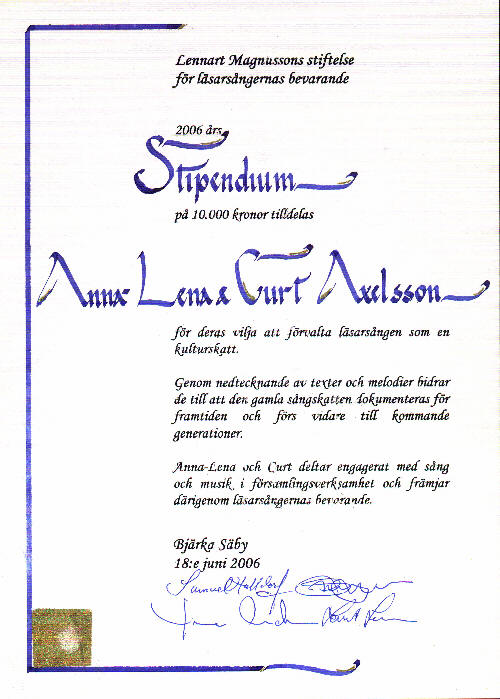 Lennart Magnussons stiftelse
för läsarsångernas bevarande
2006 års
Stipendium
på 10.000 kronor tilldelas
Anna-Lena & Curt Axelsson
för deras vilja att förvalta läsarsången som en
kulturskatt.
Genom nedtecknande av texter och melodier bidrar
de till att den gamla sångskatten dokumenteras för
framtiden och förs vidare till kommande
generationer.
Anna-Lena och Curt deltar engagerat med sång
och musik i församlingsverksamhet och främjar
därigenom läsarsångernas bevarande.
Bjärka Säby
18:e juni 2006
Samuel Halldorf